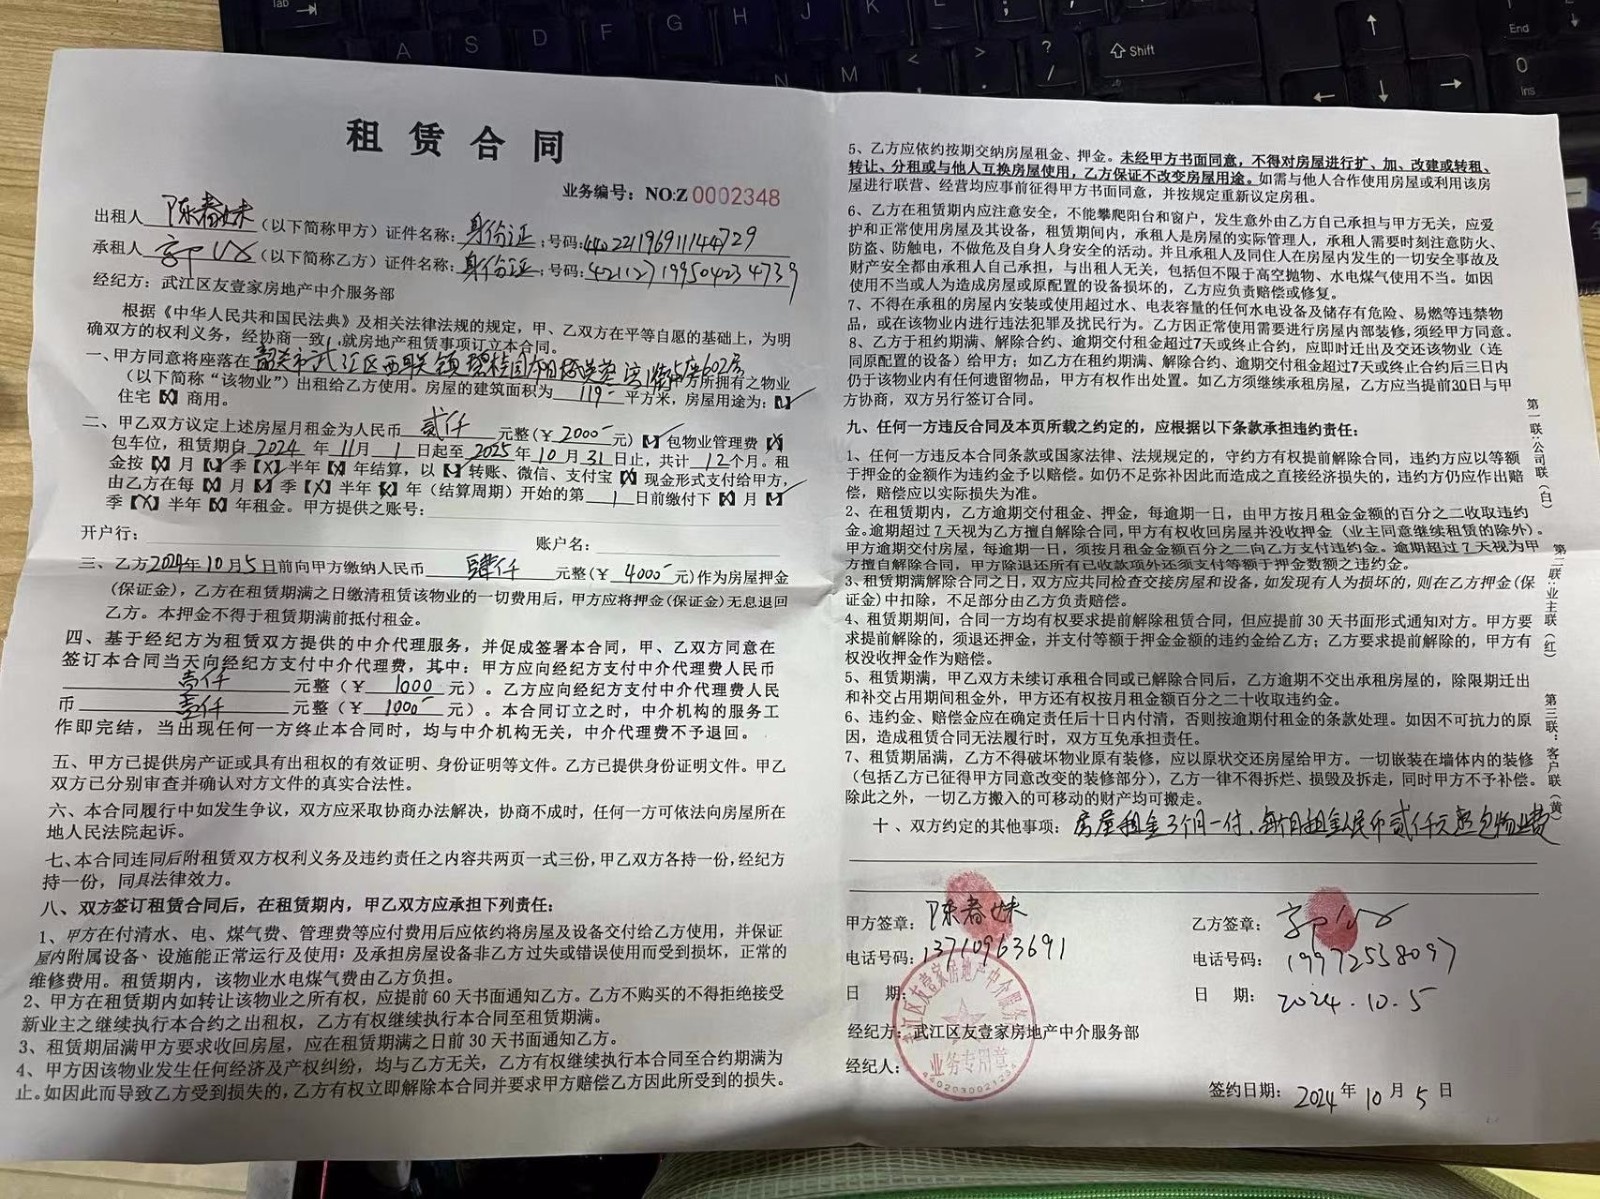 租赁合同
业务编号：NO:Z 0002348
出租人 陈春妹 (以下简称甲方) 证件名称：身份证；号码：440221196911144729
承租人 (以下简称乙方) 证件名称：身份证；号码：421127199504234739
经纪方：武江区友壹家房地产中介服务部
根据《中华人民共和国民法典》及相关法律法规的规定，甲、乙双方在平等自愿的基础上，为明
确双方的权利义务，经协商一致，就房地产租赁事项订立本合同。
一、甲方同意将座落在 韶关市武江区西联镇碧桂园 602房 甲方所拥有之物业
(以下简称“该物业”) 出租给乙方使用。房屋的建筑面积为 119 平方米，房屋用途为：【✓】
住宅【X】商用。
二、甲乙双方议定上述房屋月租金为人民币 贰仟 元整(￥ 2000 元)【✓】包物业管理费【X】
包车位，租赁期自 2024 年 11 月 1 日起至 2025 年 10 月 31 日止，共计 12 个月。租
金按【X】月【✓】季【X】半年【X】年结算，以【✓】转账、微信、支付宝【X】现金形式支付给甲方，
由乙方在每【X】月【✓】季【X】半年【X】年（结算周期）开始的第 1 日前缴付下【X】月【✓】
季【X】半年【X】年租金。甲方提供之账号：
开户行： 账户名：
三、乙方2024年10月5日前向甲方缴纳人民币 肆仟 元整(￥ 4000 元)作为房屋押金
(保证金)，乙方在租赁期满之日缴清租赁该物业的一切费用后，甲方应将押金(保证金)无息退回
乙方。本押金不得于租赁期满前抵付租金。
四、基于经纪方为租赁双方提供的中介代理服务，并促成签署本合同，甲、乙双方同意在
签订本合同当天向经纪方支付中介代理费，其中：甲方应向经纪方支付中介代理费人民币
壹仟 元整（￥ 1000 元）。乙方应向经纪方支付中介代理费人民
币 壹仟 元整（￥ 1000 元）。本合同订立之时，中介机构的服务工
作即完结，当出现任何一方终止本合同时，均与中介机构无关，中介代理费不予退回。
五、甲方已提供房产证或具有出租权的有效证明、身份证明等文件。乙方已提供身份证明文件。甲乙
双方已分别审查并确认对方文件的真实合法性。
六、本合同履行中如发生争议，双方应采取协商办法解决，协商不成时，任何一方可依法向房屋所在
地人民法院起诉。
七、本合同连同后附租赁双方权利义务及违约责任之内容共两页一式三份，甲乙双方各持一份，经纪方
持一份，同具法律效力。
八、双方签订租赁合同后，在租赁期内，甲乙双方应承担下列责任：
1、甲方在付清水、电、煤气费、管理费等应付费用后应依约将房屋及设备交付给乙方使用，并保证
屋内附属设备、设施能正常运行及使用；及承担房屋设备非乙方过失或错误使用而受到损坏，正常的
维修费用。租赁期内，该物业水电煤气费由乙方负担。
2、甲方在租赁期内如转让该物业之所有权，应提前60天书面通知乙方。乙方不购买的不得拒绝接受
新业主之继续执行本合约之出租权，乙方有权继续执行本合同至租赁期满。
3、租赁期届满甲方要求收回房屋，应在租赁期满之日前30天书面通知乙方。
4、甲方因该物业发生任何经济及产权纠纷，均与乙方无关，乙方有权继续执行本合同至合约期满为
止。如因此而导致乙方受到损失的，乙方有权立即解除本合同并要求甲方赔偿乙方因此所受到的损失。
5、乙方应依约按期交纳房屋租金、押金。未经甲方书面同意，不得对房屋进行扩、加、改建或转租、
转让、分租或与他人互换房屋使用，乙方保证不改变房屋用途。如需与他人合作使用房屋或利用该房
屋进行联营、经营均应事前征得甲方书面同意，并按规定重新议定房租。
6、乙方在租赁期内应注意安全，不能攀爬阳台和窗户，发生意外由乙方自己承担与甲方无关，应爱
护和正常使用房屋及其设备，租赁期间内，承租人是房屋的实际管理人，承租人需要时刻注意防火、
防盗、防触电，不做危及自身人身安全的活动。并且承租人及同住人在房屋内发生的一切安全事故及
财产安全都由承租人自己承担，与出租人无关，包括但不限于高空抛物、水电煤气使用不当。如因
使用不当或人为造成房屋或原配置的设备损坏的，乙方应负责赔偿或修复。
7、不得在承租的房屋内安装或使用超过水、电表容量的任何水电设备及储存有危险、易燃等违禁物
品，或在该物业内进行违法犯罪及扰民行为。乙方因正常使用需要进行房屋内部装修，须经甲方同意。
8、乙方于租约期满、解除合约、逾期交付租金超过7天或终止合约，应即时迁出及交还该物业（连
同原配置的设备）给甲方；如乙方在租约期满、解除合约、逾期交付租金超过7天或终止合约后三日内
仍于该物业内有任何遗留物品，甲方有权作出处置。如乙方须继续承租房屋，乙方应当提前30日与甲
方协商，双方另行签订合同。
九、任何一方违反合同及本页所载之约定的，应根据以下条款承担违约责任：
1、任何一方违反本合同条款或国家法律、法规规定的，守约方有权提前解除合同，违约方应以等额
于押金的金额作为违约金予以赔偿。如仍不足弥补因此而造成之直接经济损失的，违约方仍应作出赔
偿，赔偿应以实际损失为准。
2、在租赁期内，乙方逾期交付租金、押金，每逾期一日，由甲方按月租金金额的百分之二收取违约
金。逾期超过7天视为乙方擅自解除合同，甲方有权收回房屋并没收押金（业主同意继续租赁的除外）。
甲方逾期交付房屋，每逾期一日，须按月租金金额百分之二向乙方支付违约金。逾期超过7天视为甲
方擅自解除合同，甲方除退还所有已收款项外还须支付等额于押金数额之违约金。
3、租赁期满解除合同之日，双方应共同检查交接房屋和设备，如发现有人为损坏的，则在乙方押金(保
证金)中扣除，不足部分由乙方负责赔偿。
4、租赁期期间，合同一方均有权要求提前解除租赁合同，但应提前30天书面形式通知对方。甲方要
求提前解除的，须退还押金，并支付等额于押金金额的违约金给乙方；乙方要求提前解除的，甲方有
权没收押金作为赔偿。
5、租赁期满，甲乙双方未续订承租合同或已解除合同后，乙方逾期不交出承租房屋的，除限期迁出
和补交占用期间租金外，甲方还有权按月租金额百分之二十收取违约金。
6、违约金、赔偿金应在确定责任后十日内付清，否则按逾期付租金的条款处理。如因不可抗力的原
因，造成租赁合同无法履行时，双方互免承担责任。
7、租赁期届满，乙方不得破坏物业原有装修，应以原状交还房屋给甲方。一切嵌装在墙体内的装修
（包括乙方已征得甲方同意改变的装修部分），乙方一律不得拆烂、损毁及拆走，同时甲方不予补偿。
除此之外，一切乙方搬入的可移动的财产均可搬走。
十、双方约定的其他事项：房屋租金3个月一付，每个月租金人民币贰仟元整包物业费
甲方签章：陈春妹 乙方签章：
电话号码：13710963691 电话号码：19972558097
日 期： 日 期：2024.10.5
经纪方：武江区友壹家房地产中介服务部
经纪人：
签约日期：2024年10月5日
武江区友壹家房地产中介服务部
业务专用章
第一联：公司联（白）
第二联：业主联（红）
第三联：客户联（黄）
Tab
A S D F G H J K L
N M < > ? /
Shift
End
0
Ins